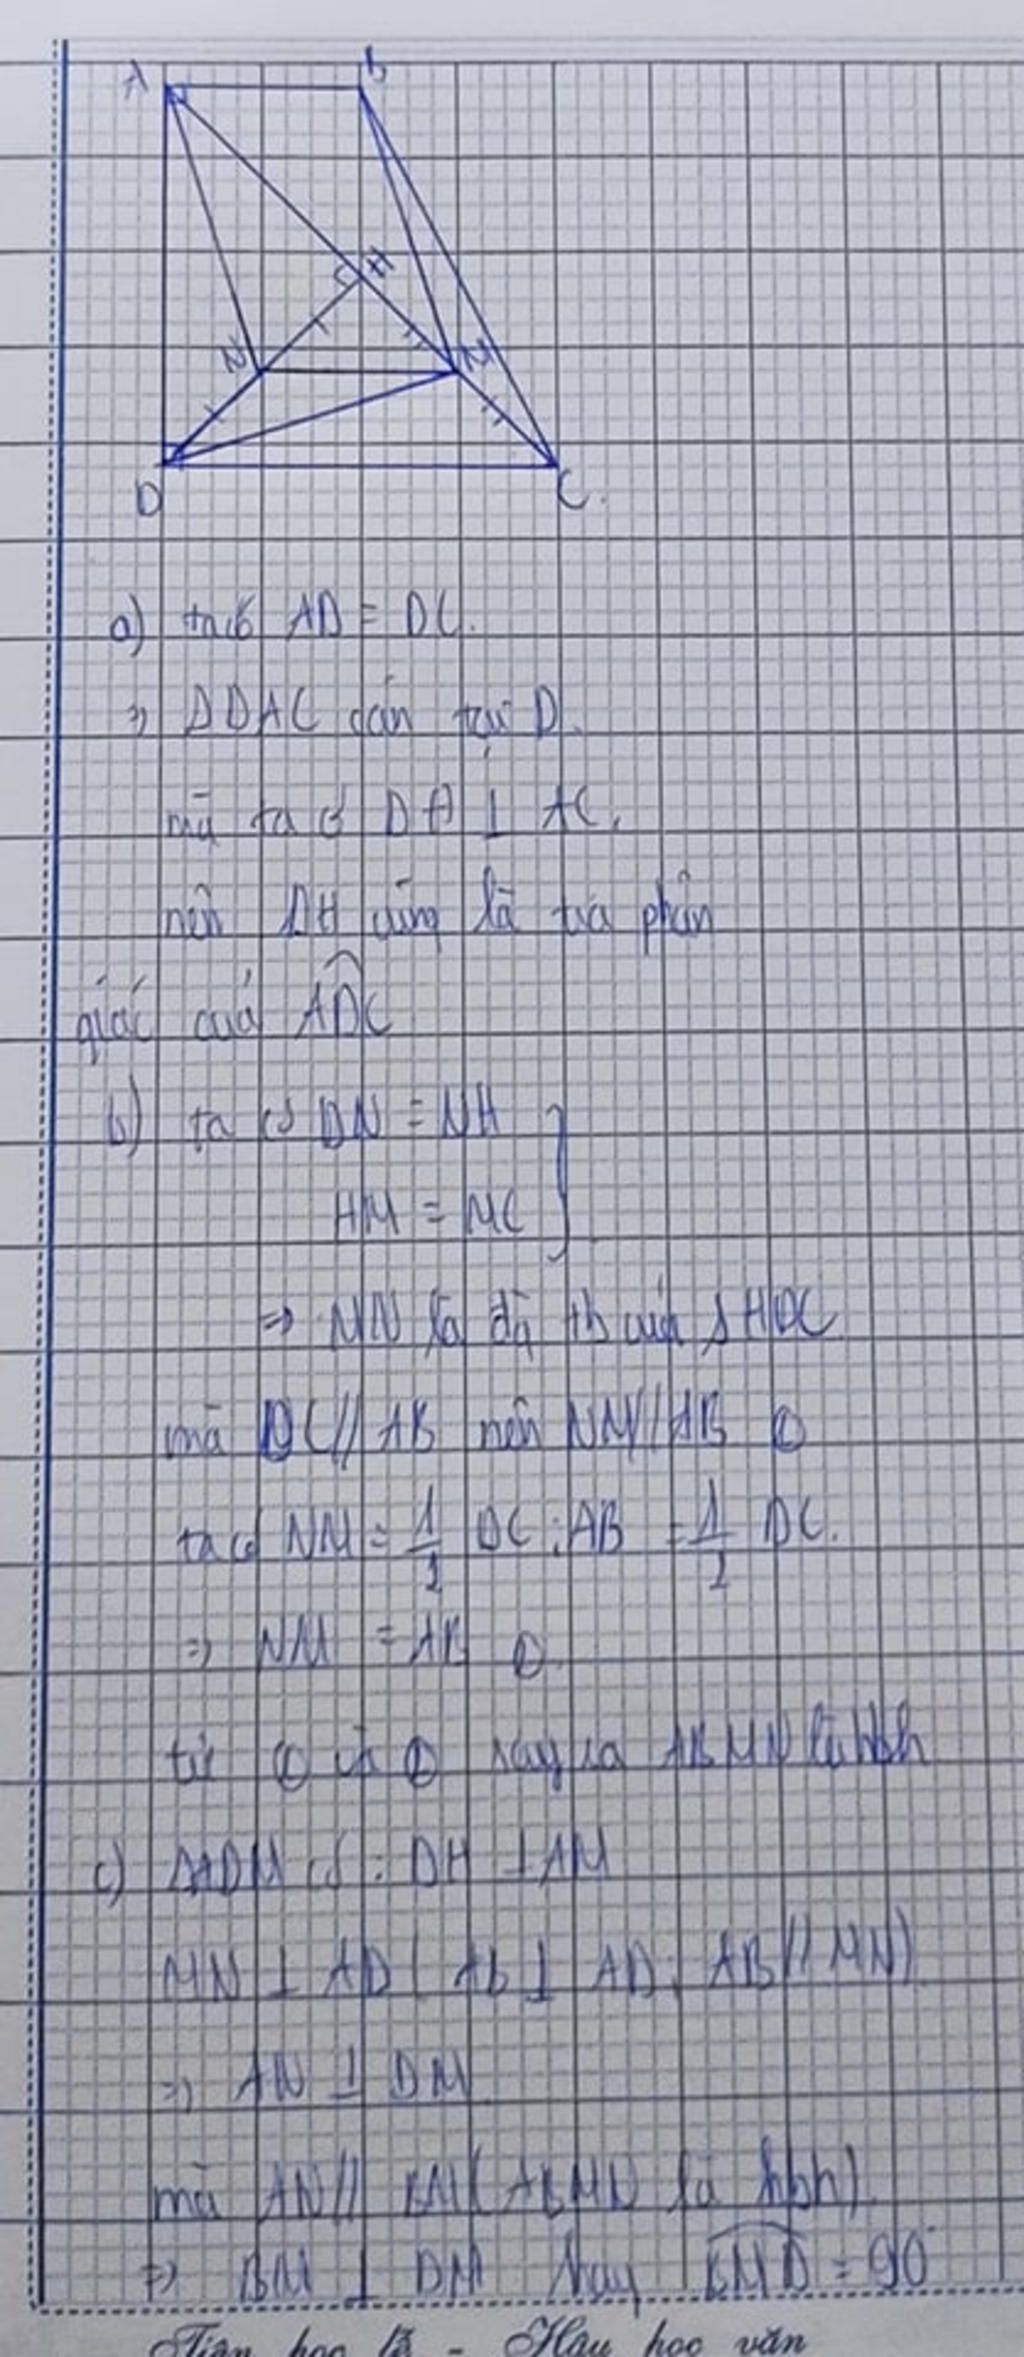 A B
H
N M
D C.
a) ta có AD = DC.
=> ΔDAC cân tại D.
mà ta có DH ⊥ AC.
nên DH cũng là tia phân
giác của \widehat{ADC}
b) ta có DN = NH }
HM = MC }
=> MN là đg tb của ΔHDC
mà DC // AB nên NM // AB ①
ta có NM = 1/2 DC ; AB = 1/2 DC.
=> NM = AB ②.
từ ① và ② suy ra ABMN là hbh
c) ΔADM có : DH ⊥ AM
MN ⊥ AD ( AB ⊥ AD ; AB // MN)
=> AN ⊥ DM
mà AN // BM ( ABMN là hbh)
=> BM ⊥ DM hay \widehat{BMD} = 90°
Tiên học lễ - Hậu học văn